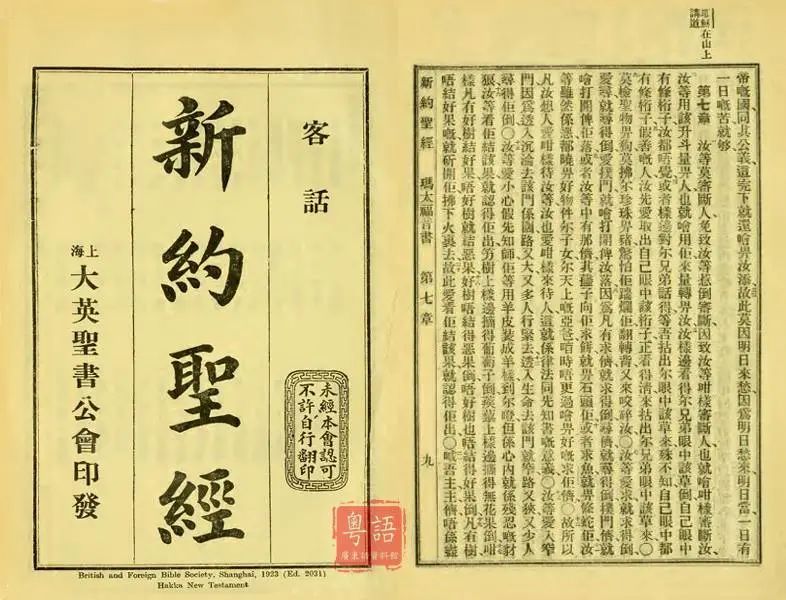 客話
新約聖經
上海 大英聖書公會印發
未經本會認可
不許自行翻印
British and Foreign Bible Society, Shanghai, 1923 (Ed. 2031)
Hakka New Testament
粵語
廣東話資料館
耶穌在山上講道
帝嘅國同其公義這完下就還噲畀汝添故此莫因明日來愁因爲明日愁來明日當一日有
一日嘅苦就够
第七章 汝等莫審斷人免致汝等惹倒審斷因致汝等咁樣審斷人也就噲咁樣審斷汝
汝等用該升斗量畀人也就噲用佢來量轉畀汝汝樣邊看得尔兄弟眼中該草倒自己眼中
有條桁子汝都唔覺或者樣邊對尔兄弟話得等吾括出尔眼中該草來殊不知自己眼中都
有條桁子假善嘅人汝先愛取出自己眼中該桁子正看得清來括出尔兄弟眼中該草來〇
莫檢聖物畀狗莫拂尔珍珠畀豬驚怕佢踹爛佢翻轉背又來咬碎汝〇汝等愛求就求得倒
愛尋就尋得倒愛撲門就噲打開俾汝落因爲凡有求儕就求得倒尋儕就尋得倒撲門儕就
噲打開俾佢落或者汝等中有那儕其子向佢求餅就畀石頭佢或者求魚就畀條蛇佢汝
等雖然係惡都曉畀好物件尔子女尔天上嘅亞爸唔時唔更過噲畀好嘅求佢儕〇故所以
凡汝想人愛咁樣待汝等汝也愛咁樣來待人這就係律法同先知書嘅意義〇汝等愛入窄
門因爲透入沉淪去該門係闊路又大又多人行緊去透入生命去該門就窄路又狹又少人
尋得佢倒〇汝等愛小心假先知師佢等用羊皮裝成羊樣到尔但係心內就係殘忍嘅豺
狠汝等看佢結該果就認得佢出樹上樣邊摘得葡萄子倒蒺藜上樣邊摘得無花果倒咁
樣凡有好樹結好果唔好樹就結惡果好樹唔結得惡果倒唔好樹也唔結得好果倒凡有樹
唔結好果嘅就斫開佢拂下火裏去故此愛看佢結該果就認得佢出〇嘅吾主主儕唔係
新約聖經 瑪太福音書 第七章 九